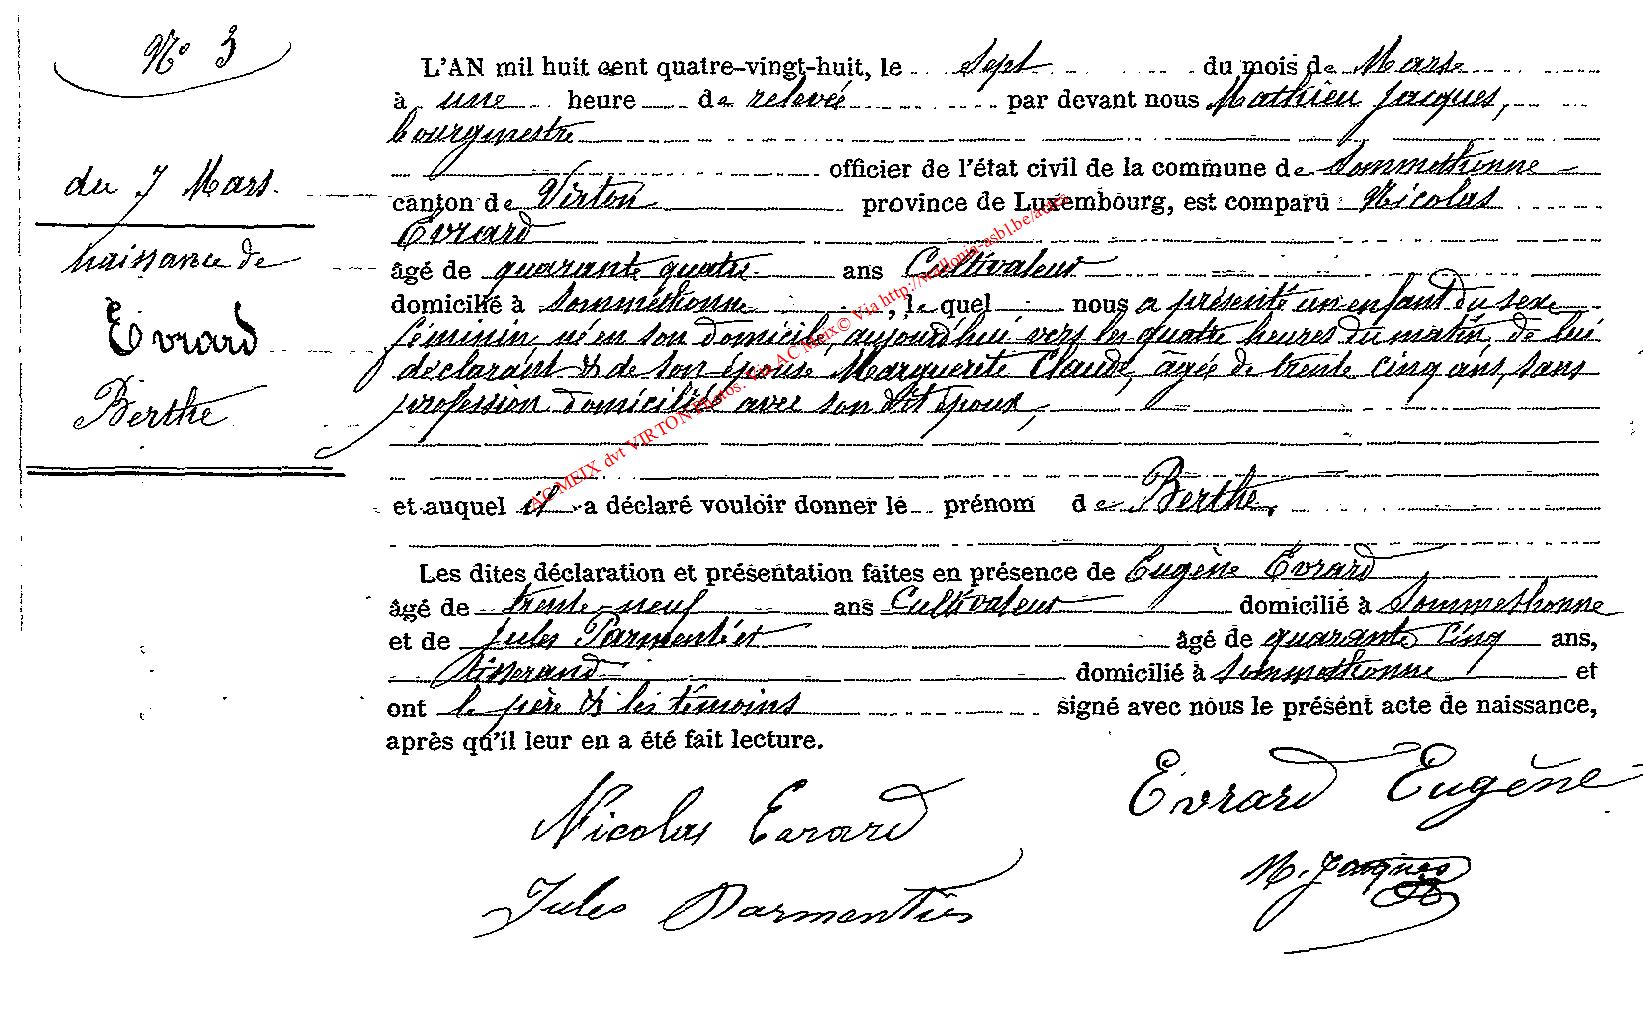 N° 3
du 7 Mars.
naissance de
Evrard
Berthe
L'AN mil huit cent quatre-vingt-huit, le sept du mois de Mars
à une heure de relevée par devant nous Mathieu Jacques,
bourgmestre
officier de l'état civil de la commune de Sommethonne
canton de Virton province de Luxembourg, est comparu Nicolas
Evrard
âgé de quarante quatre ans Cultivateur
domicilié à Sommethonne, lequel nous a présenté un enfant du sexe
féminin, né en son domicile, aujourd'hui vers les quatre heures du matin, de lui
déclarant & de son épouse Marguerite Claude, agée de trente cinq ans, sans
profession domiciliée avec son dit époux,
et auquel il a déclaré vouloir donner le prénom de Berthe,
Les dites déclaration et présentation faites en présence de Eugène Evrard
âgé de trente-neuf ans Cultivateur domicilié à Sommethonne
et de Jules Parmentier âgé de quarante cinq ans,
tisserand domicilié à Sommethonne et
ont le père & les témoins signé avec nous le présent acte de naissance,
après qu'il leur en a été fait lecture.
Nicolas Evrard
Evrard Eugène
Jules Parmentier
M. Jacques
AC MEIX dvt VIRTON Photos: Via AC Meix© Via http://wallonia-asbl.be/